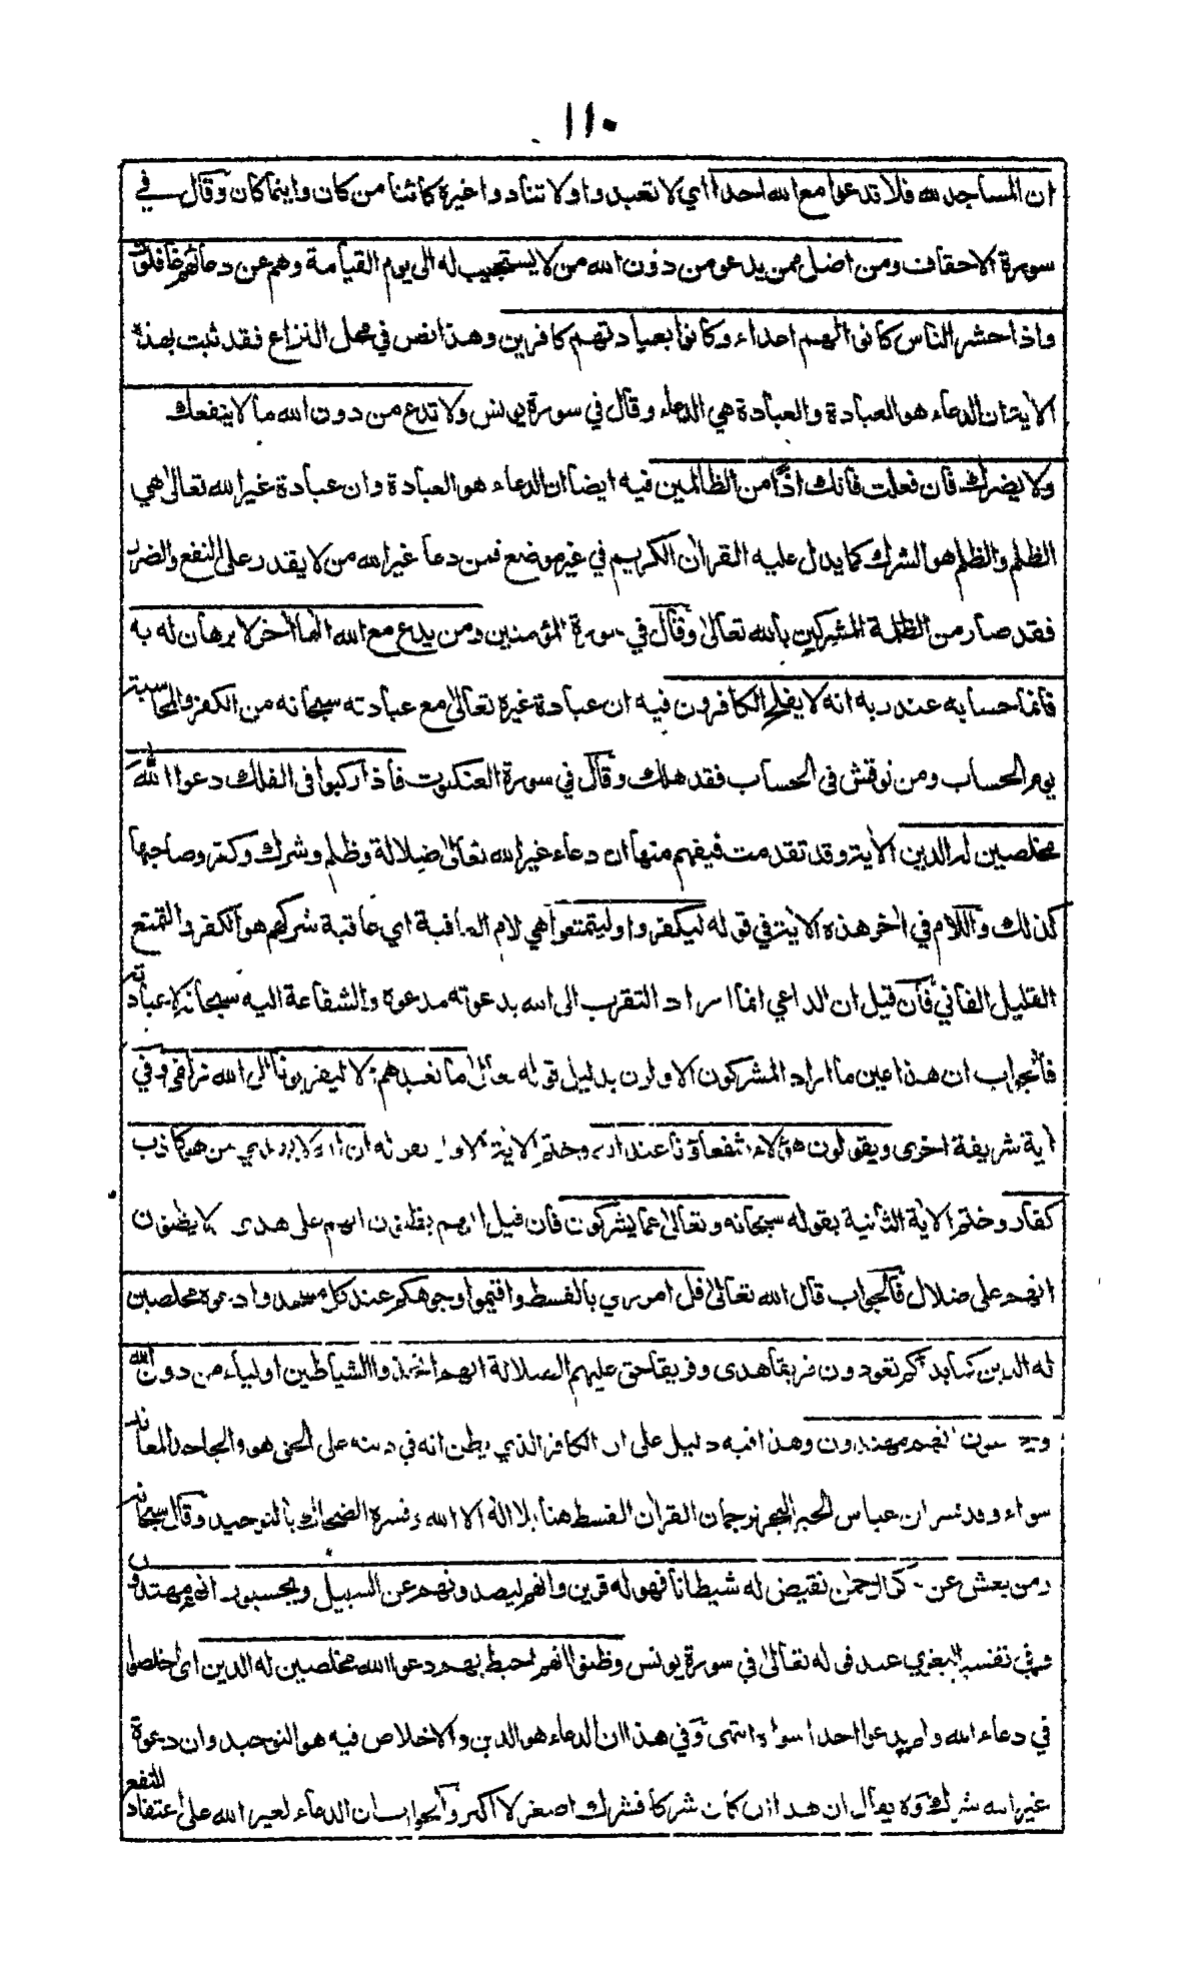 ١١٠
ان المساجد لله فلا تدعوا مع الله احدا اي لا تعبدوا ولا تنادوا غيره كائنا من كان واينما كان وقال في
سورة الاحقاف ومن اضل ممن يدعو من دون الله من لا يستجيب له الى يوم القيامة وهم عن دعائهم غافلون
واذا حشر الناس كانوا لهم اعداء وكانوا بعبادتهم كافرين وهذا نص في محل النزاع فقد ثبت بهذه
الاية ان الدعاء هو العبادة والعبادة هي الدعاء وقال في سورة يونس ولا تدع من دون الله ما لا ينفعك
ولا يضرك فان فعلت فانك اذًا من الظالمين فيه ايضا ان الدعاء هو العبادة وان عبادة غير الله تعالى هي
الظلم والظلم هو الشرك كما يدل عليه القران الكريم في غير موضع فمن دعا غير الله من لا يقدر على النفع والضر
فقد صار من الظلمة المشركين بالله تعالى وقال في سورة المؤمنين ومن يدع مع الله الها اخر لا برهان له به
فانما حسابه عند ربه انه لا يفلح الكافرون فيه ان عبادة غيره تعالى مع عبادته سبحانه من الكفر والمحاسبة
يوم الحساب ومن نوقش في الحساب فقد هلك وقال في سورة العنكبوت فاذا ركبوا في الفلك دعوا الله
مخلصين له الدين الاية وقد تقدمت فيفهم منها ان دعاء غير الله تعالى ضلالة وظلم وشرك وكفر وصاحبها
كذلك واللام في اخر هذه الاية في قوله ليكفروا وليتمتعوا هي لام العاقبة اي عاقبة شركهم هو الكفر والتمتع
القليل الفاني فان قيل ان الداعي انما اراد التقرب الى الله بدعوته مدعوه والشفاعة اليه سبحانه لا عبادته
فالجواب ان هذا عين ما اراد المشركون الاولون بدليل قوله تعالى ما نعبدهم الا ليقربونا الى الله زلفى وفي
اية شريفة اخرى ويقولون هؤلاء شفعاؤنا عند الله وختم الاية الاولى بقوله ان الله لا يهدي من هو كاذب
كفار وختم الاية الثانية بقوله سبحانه وتعالى عما يشركون فان قيل انهم يظنون انهم على هدى لا يظنون
انهم على ضلال فالجواب قال الله تعالى قل امر ربي بالقسط واقيموا وجوهكم عند كل مسجد وادعوه مخلصين
له الدين كما بدءكم تعودون فريقا هدى وفريقا حق عليهم الضلالة انهم اتخذوا الشياطين اولياء من دون الله
ويحسبون انهم مهتدون وهذا فيه دليل على ان الكافر الذي يظن انه في دينه على الحق هو والجاحد والمعاند
سواء وقد فسر ابن عباس الحبر البحر ترجمان القران القسط هنا بلا اله الا الله وفسره الضحاك بالتوحيد وقال سبحانه
ومن يعش عن ذكر الرحمن نقيض له شيطانا فهو له قرين وانهم ليصدونهم عن السبيل ويحسبون انهم مهتدون
وفي تفسير البغوي عند قوله تعالى في سورة يونس وظنوا انهم احيط بهم دعوا الله مخلصين له الدين اي اخلصوا
في دعاء الله ولم يدعوا احدا سواه انتهى وفي هذا ان الدعاء هو الدين والاخلاص فيه هو التوحيد وان دعوة
غير الله شرك ولا يقال ان هذا ان كان شركا فشرك اصغر لا اكبر والجواب ان الدعاء لغير الله على اعتقاد النفع